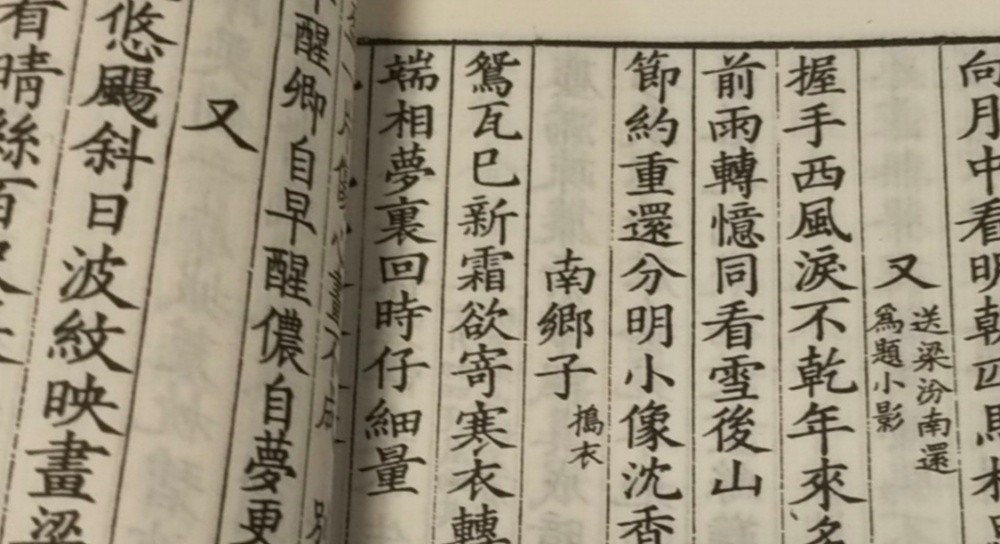 向月中看明朝匹馬相
又 送梁汾南還
爲題小影
握手西風淚不乾年來多
前雨轉憶同看雪後山
節約重還分明小像沈香
南鄉子 搗衣
鴛瓦已新霜欲寄寒衣轉
端相夢裏回時仔細量
醒卿自早醒儂自夢更
又
悠颺斜日波紋映畫梁
看晴絲百尺